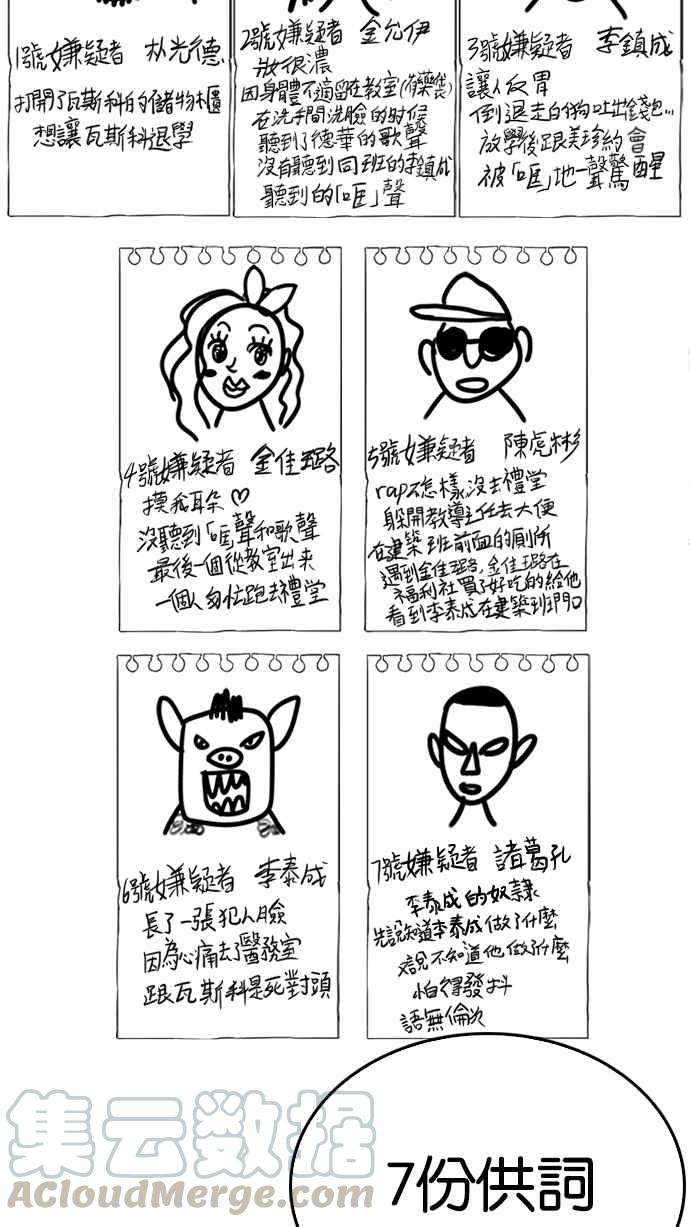 1號嫌疑者 朴光德
打開了瓦斯科的儲物櫃
想讓瓦斯科退學
2號嫌疑者 金允伊
妝很濃
因身體不適留在教室(有藥袋)
在洗手間洗臉的時候
聽到了德華的歌聲
沒有聽到同班的李鎮成
聽到的「哐」聲
3號嫌疑者 李鎮成
讓人反胃
倒退走的狗吐出錢包...
放學後跟美珍約會
被「哐」地一聲驚醒
4號嫌疑者 金佳璐
摸我耳朵♡
沒聽到「哐」聲和歌聲
最後一個從教室出來
一個人匆忙跑去禮堂
5號嫌疑者 陳虎彬
rap不怎樣沒去禮堂
躲開教導主任去大便
在建築班前面的廁所
遇到金佳璐,金佳璐在
福利社買了好吃的給他
看到李泰成在建築班門口
6號嫌疑者 李泰成
長了一張犯人臉
因為心痛去了醫務室
跟瓦斯科是死對頭
7號嫌疑者 諸葛孔
李泰成的奴隸
先說知道李泰成做了什麼
又說不知道他做了什麼
怕得發抖
語無倫次
集云数据
AcloudMerge.com
7份供詞